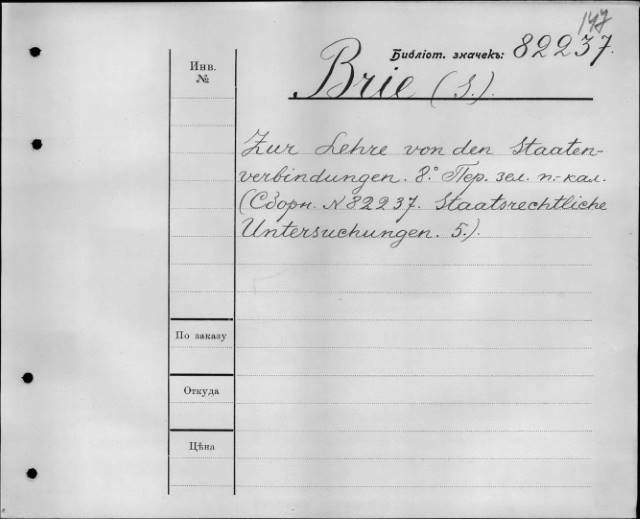 147
Библіот. значекъ: 82237.
Инв.
№
Brie (S.).
Zur Lehre von den Staaten-
verbindungen. 8.° Пер. зел. п.-кал.
(Сборн. № 82237. Staatsrechtliche
Untersuchungen. 5.).
По заказу
Откуда
Цѣна